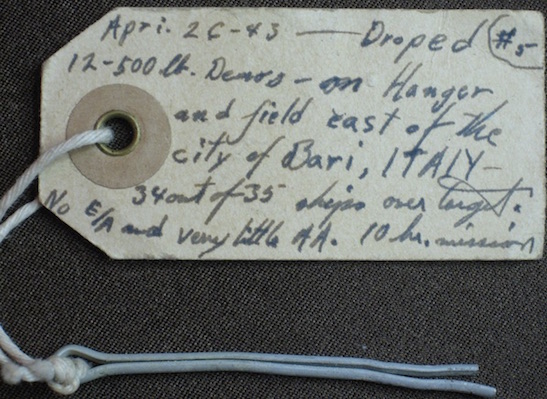 Apri. 26-43 — Droped #5
12-500 lb. Demos - on Hanger
and field east of the
city of Bari, ITALY-
34 out of 35 ships over target.
No E/A and very little AA. 10 hr. mission